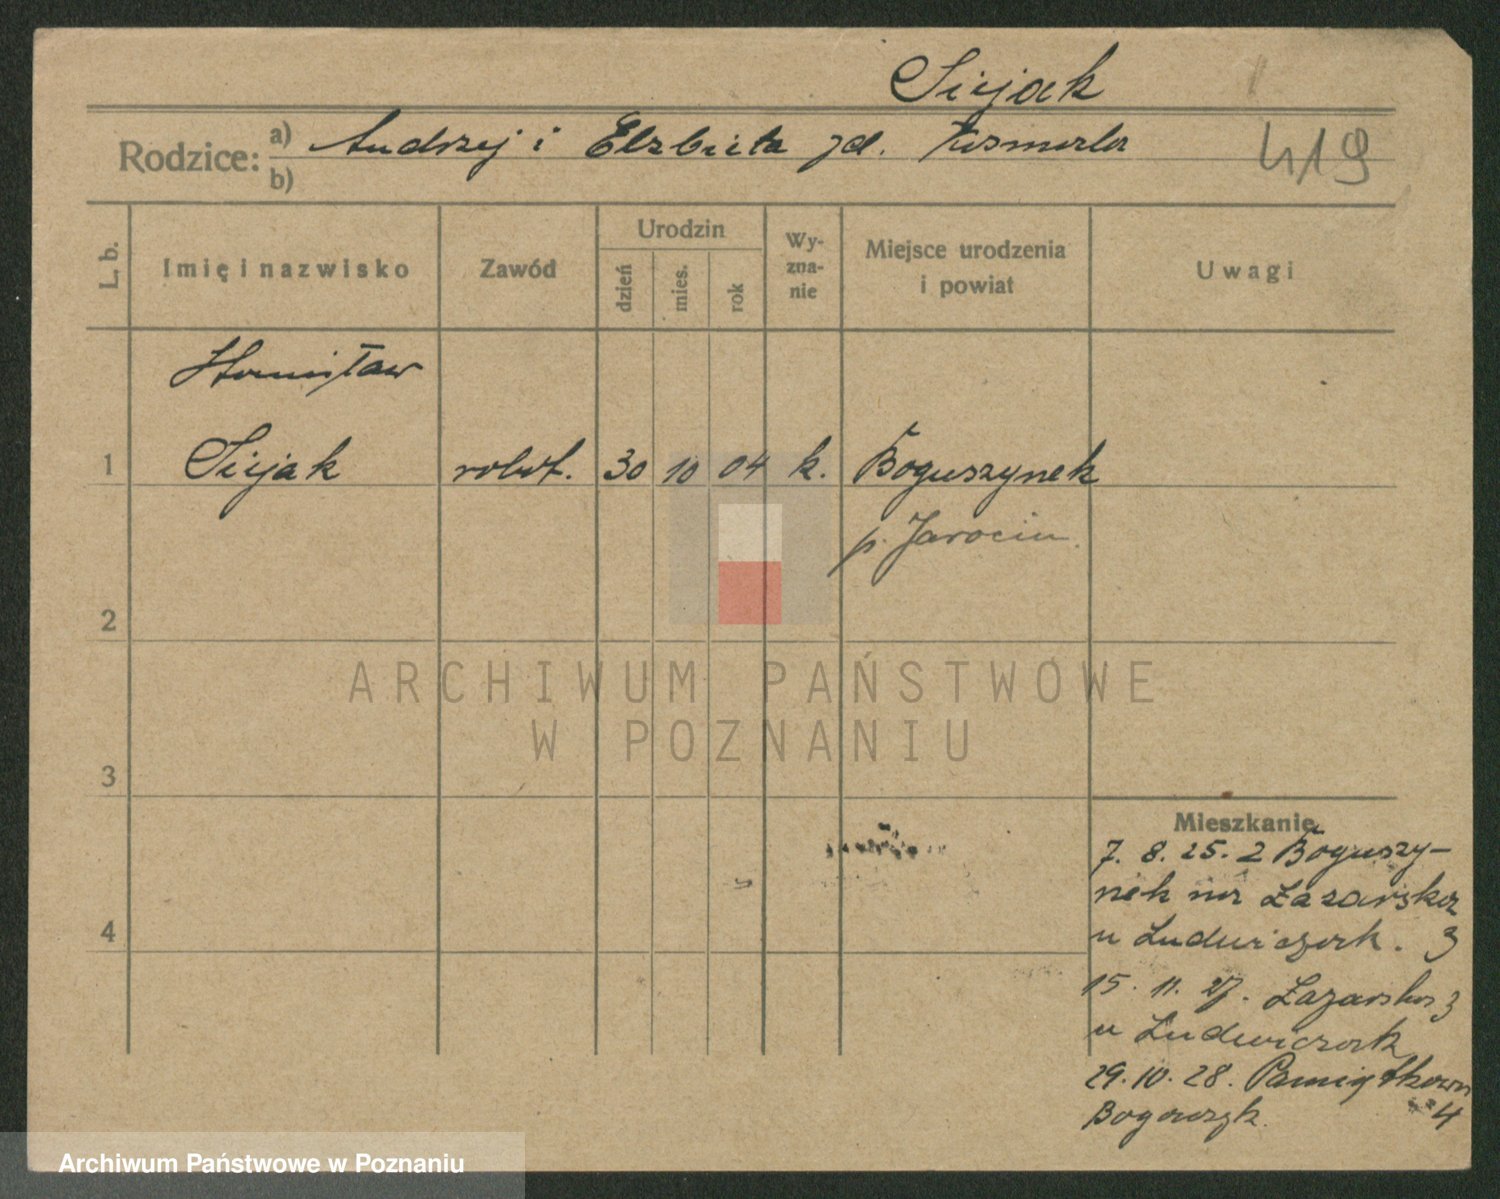 Sujak
Rodzice: a) Andrzej i Elzbieta zd.
b)
419
L. b.
Imię i nazwisko
Zawód
Urodzin
dzień
mies.
rok
Wy-
zna-
nie
Miejsce urodzenia
i powiat
Uwagi
Stanisław
1 Sujak robot. 30 10 04 k. Boguszynek
p. Jarocin.
2
3
4
ARCHIWUM PAŃSTWOWE
W POZNANIU
Mieszkanie
7. 8. 25. z Boguszy-
nek na Łazarska
u Ludwiczak. 3
15. 11. 27. Łazarska 3
u Ludwiczak
29. 10. 28. Pamiątkowa
4
Archiwum Państwowe w Poznaniu